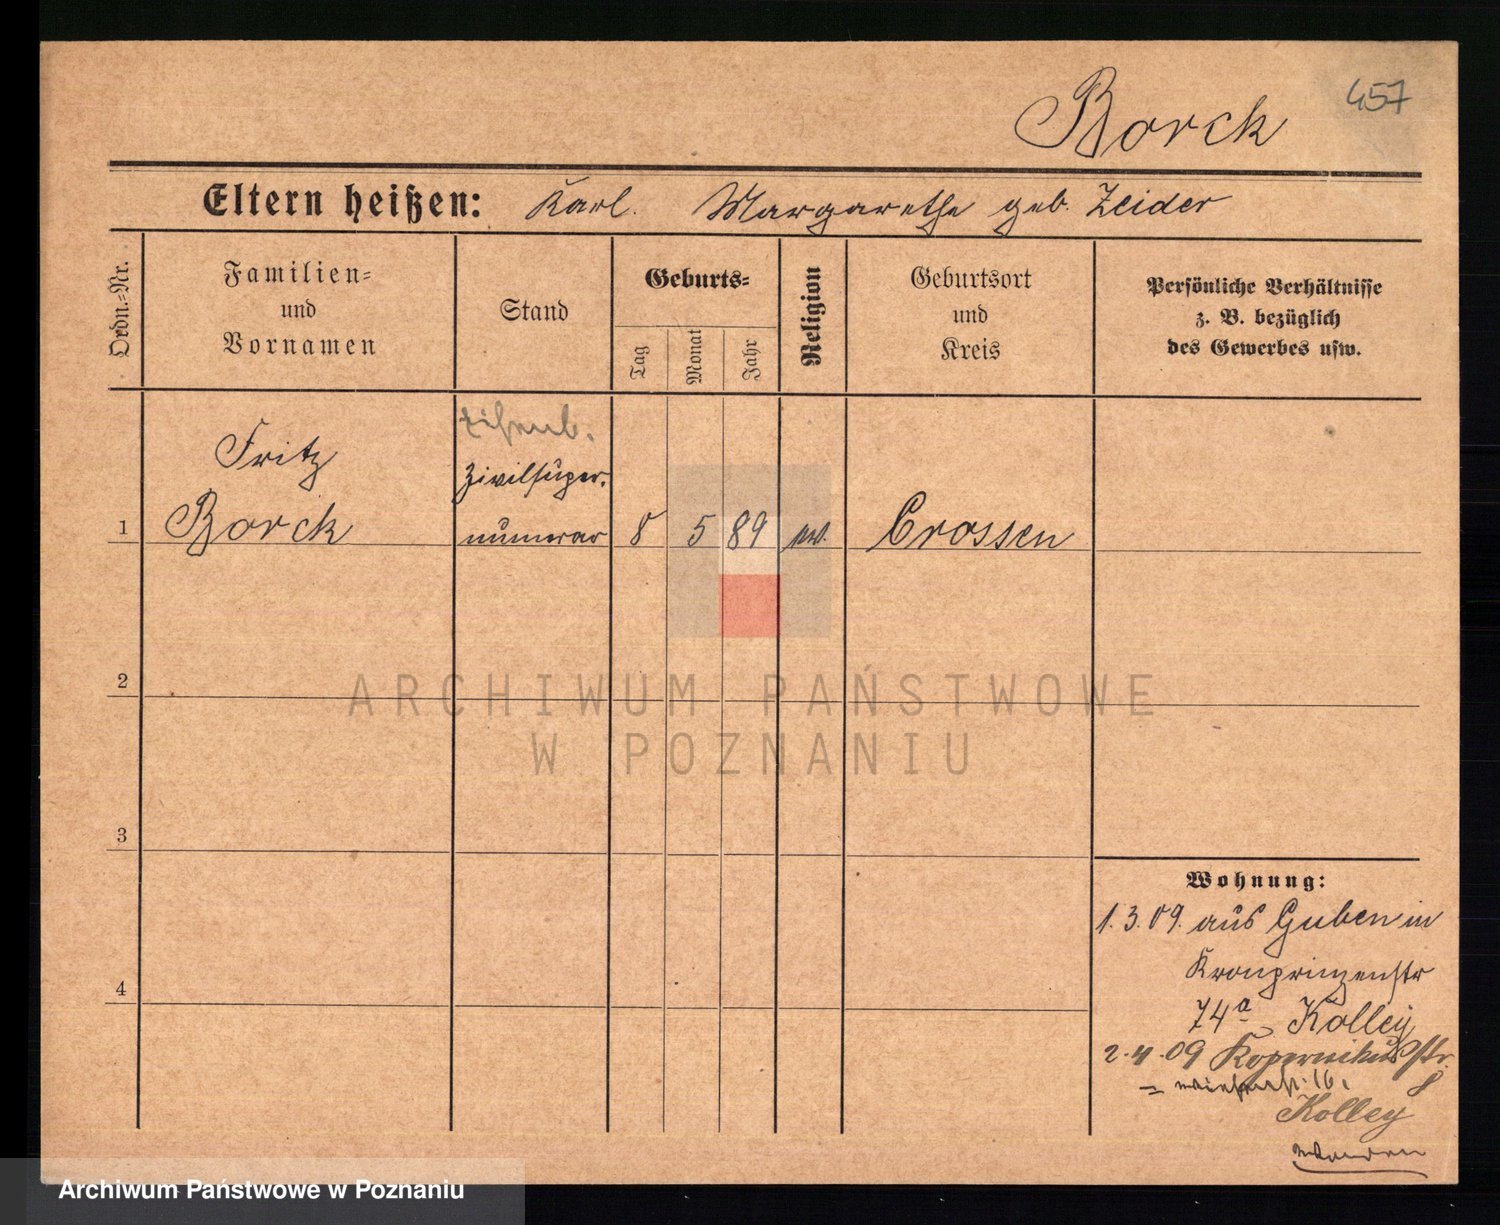 457
Borck
Eltern heißen: Karl. Margarethe geb. Zeider
Ordn.=Nr.
Familien=
und
Vornamen
Stand
Geburts=
Tag
Monat
Jahr
Religion
Geburtsort
und
Kreis
Persönliche Verhältnisse
z. B. bezüglich
des Gewerbes usw.
Fritz
Zivilsuper.
1 Borck numerar 8 5 89 ev. Crossen
2
ARCHIWUM PAŃSTWOWE
W POZNANIU
3
4
Wohnung:
1.3.09. aus Guben in
Kronprinzenstr
74a Kolley
2.4.09 Kopernikusstr.
8
16.
Kolley
Archiwum Państwowe w Poznaniu